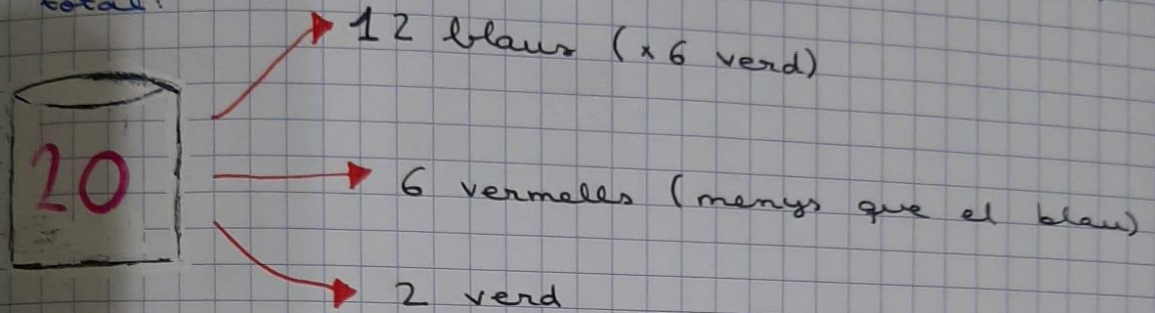 total.
12 blaus (x 6 verd)
20
6 vermelles (menys que el blau)
2 verd